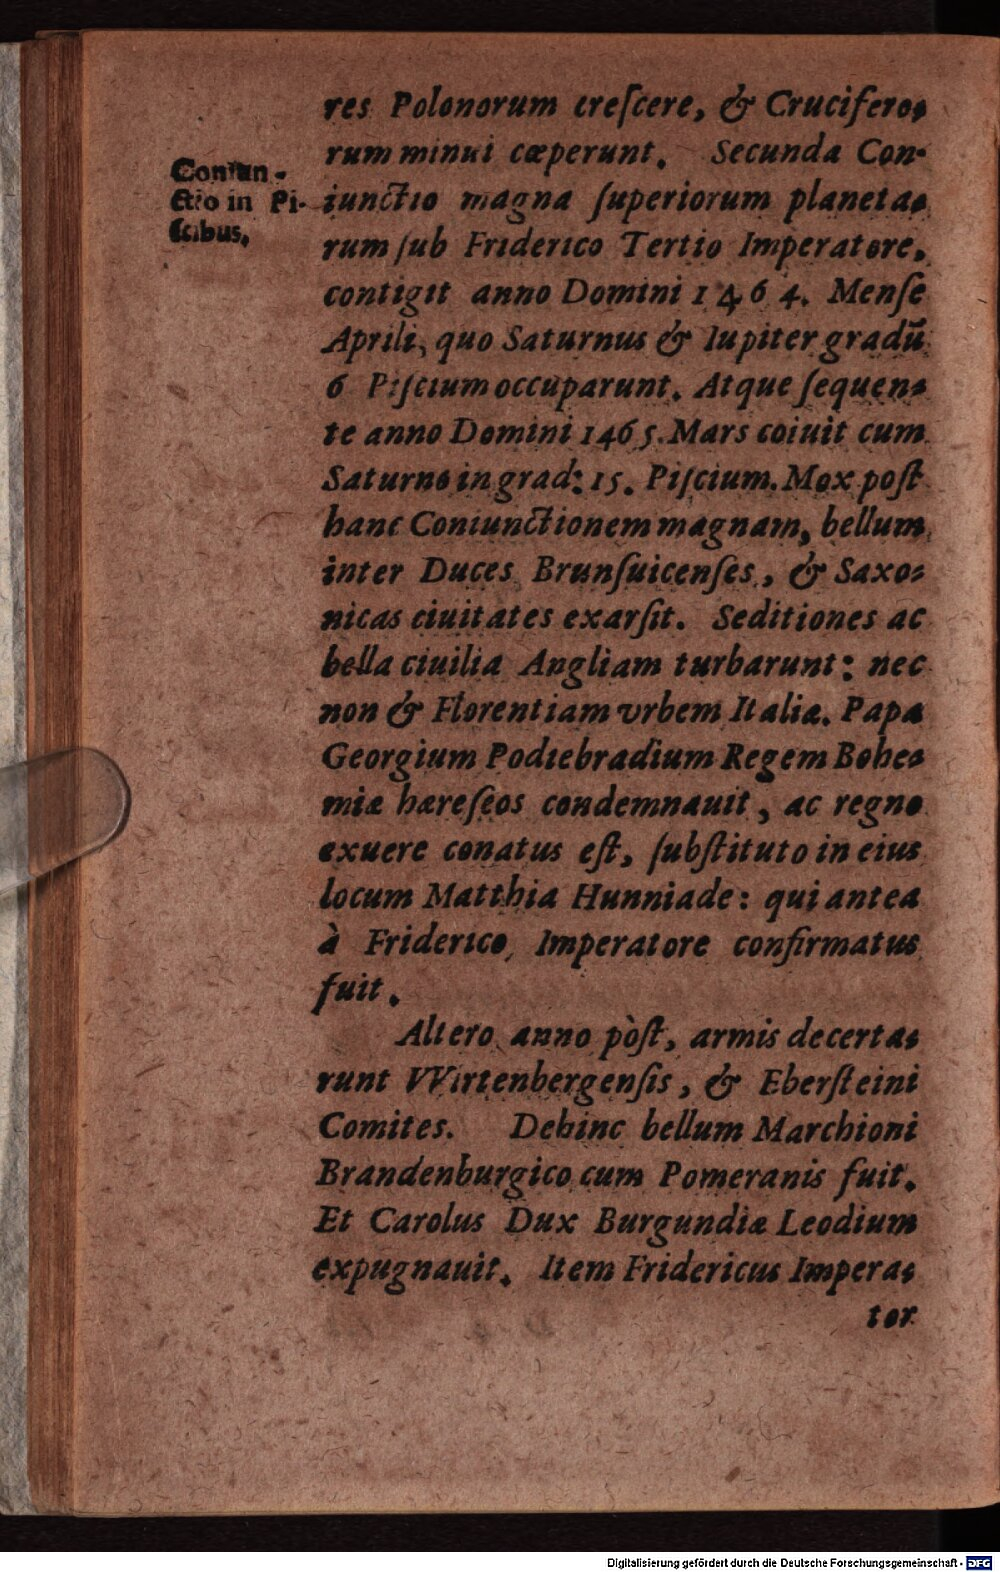 res Polonorum creſcere, & Crucifero-
rum minui cœperunt. Secunda Con-
Coniun-
ctio in Pi-
ſcibus.
iunctio magna ſuperiorum planeta-
rum ſub Friderico Tertio Imperatore,
contigit anno Domini 1464. Menſe
Aprili, quo Saturnus & Iupiter gradū
6 Piſcium occuparunt. Atque ſequen-
te anno Domini 1465. Mars coiuit cum
Saturno in grad: 15. Piſcium. Mox poſt
hanc Coniunctionem magnam, bellum
inter Duces Brunſuicenſes, & Saxo-
nicas ciuitates exarſit. Seditiones ac
bella ciuilia Angliam turbarunt: nec
non & Florentiam vrbem Italiæ. Papa
Georgium Podiebradium Regem Bohe-
miæ hæreſeos condemnauit, ac regno
exuere conatus eſt, ſubſtituto in eius
locum Matthia Hunniade: qui antea
à Friderico Imperatore confirmatus
fuit.
Altero anno pòſt, armis decerta-
runt VVirtenbergenſis, & Eberſteini
Comites. Dehinc bellum Marchioni
Brandenburgico cum Pomeranis fuit.
Et Carolus Dux Burgundiæ Leodium
expugnauit. Item Fridericus Impera-
tor
Digitalisierung gefördert durch die Deutsche Forschungsgemeinschaft - DFG